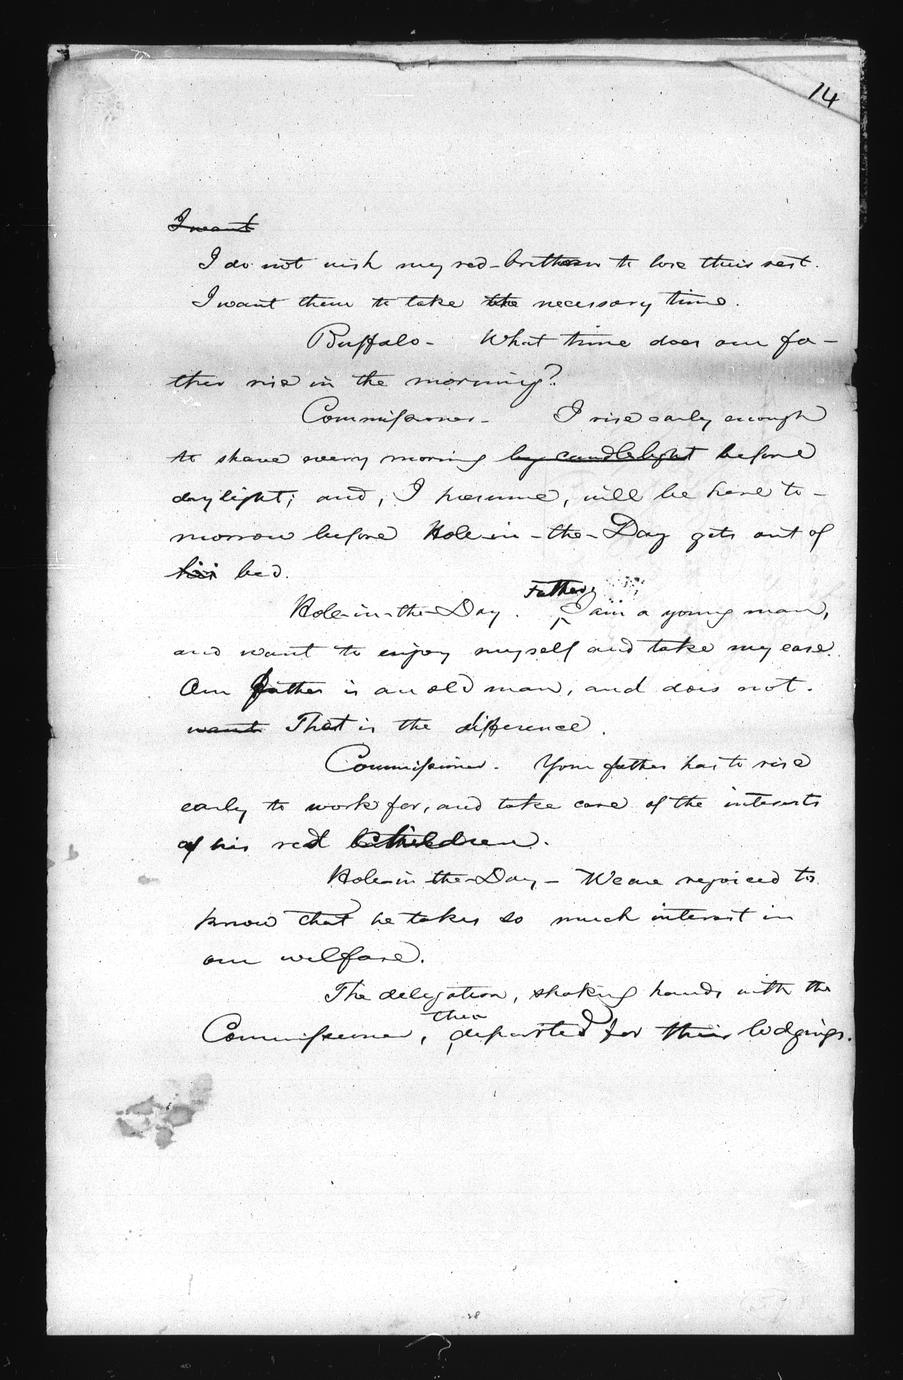 14
I want
I do not wish my red-brethren to lose their rest.
I want them to take the necessary time.
Buffalo - What time does our fa-
ther rise in the morning?
Commissioner - I rise early enough
to shave every morning by candlelight before
daylight; and, I presume, will be here to-
morrow before Hole-in-the-Day gets out of
his bed.
Father,
Hole-in-the-Day. I am a young man,
and want to enjoy myself and take my ease.
Our father is an old man, and does not.
want That is the difference.
Commissioner. Your father has to rise
early to work for, and take care of the interests
of his red children.
Hole-in-the-Day - We are rejoiced to
know that he takes so much interest in
our welfare.
The delegation, shaking hands with the
then
Commissioner, departed for their lodgings.